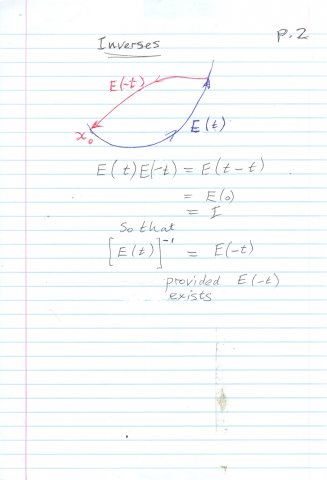 p.2
Inverses
E(-t)
x₀
E(t)
E(t)E(-t) = E(t-t)
= E(0)
= I
So that
[E(t)]⁻¹ = E(-t)
provided E(-t)
exists